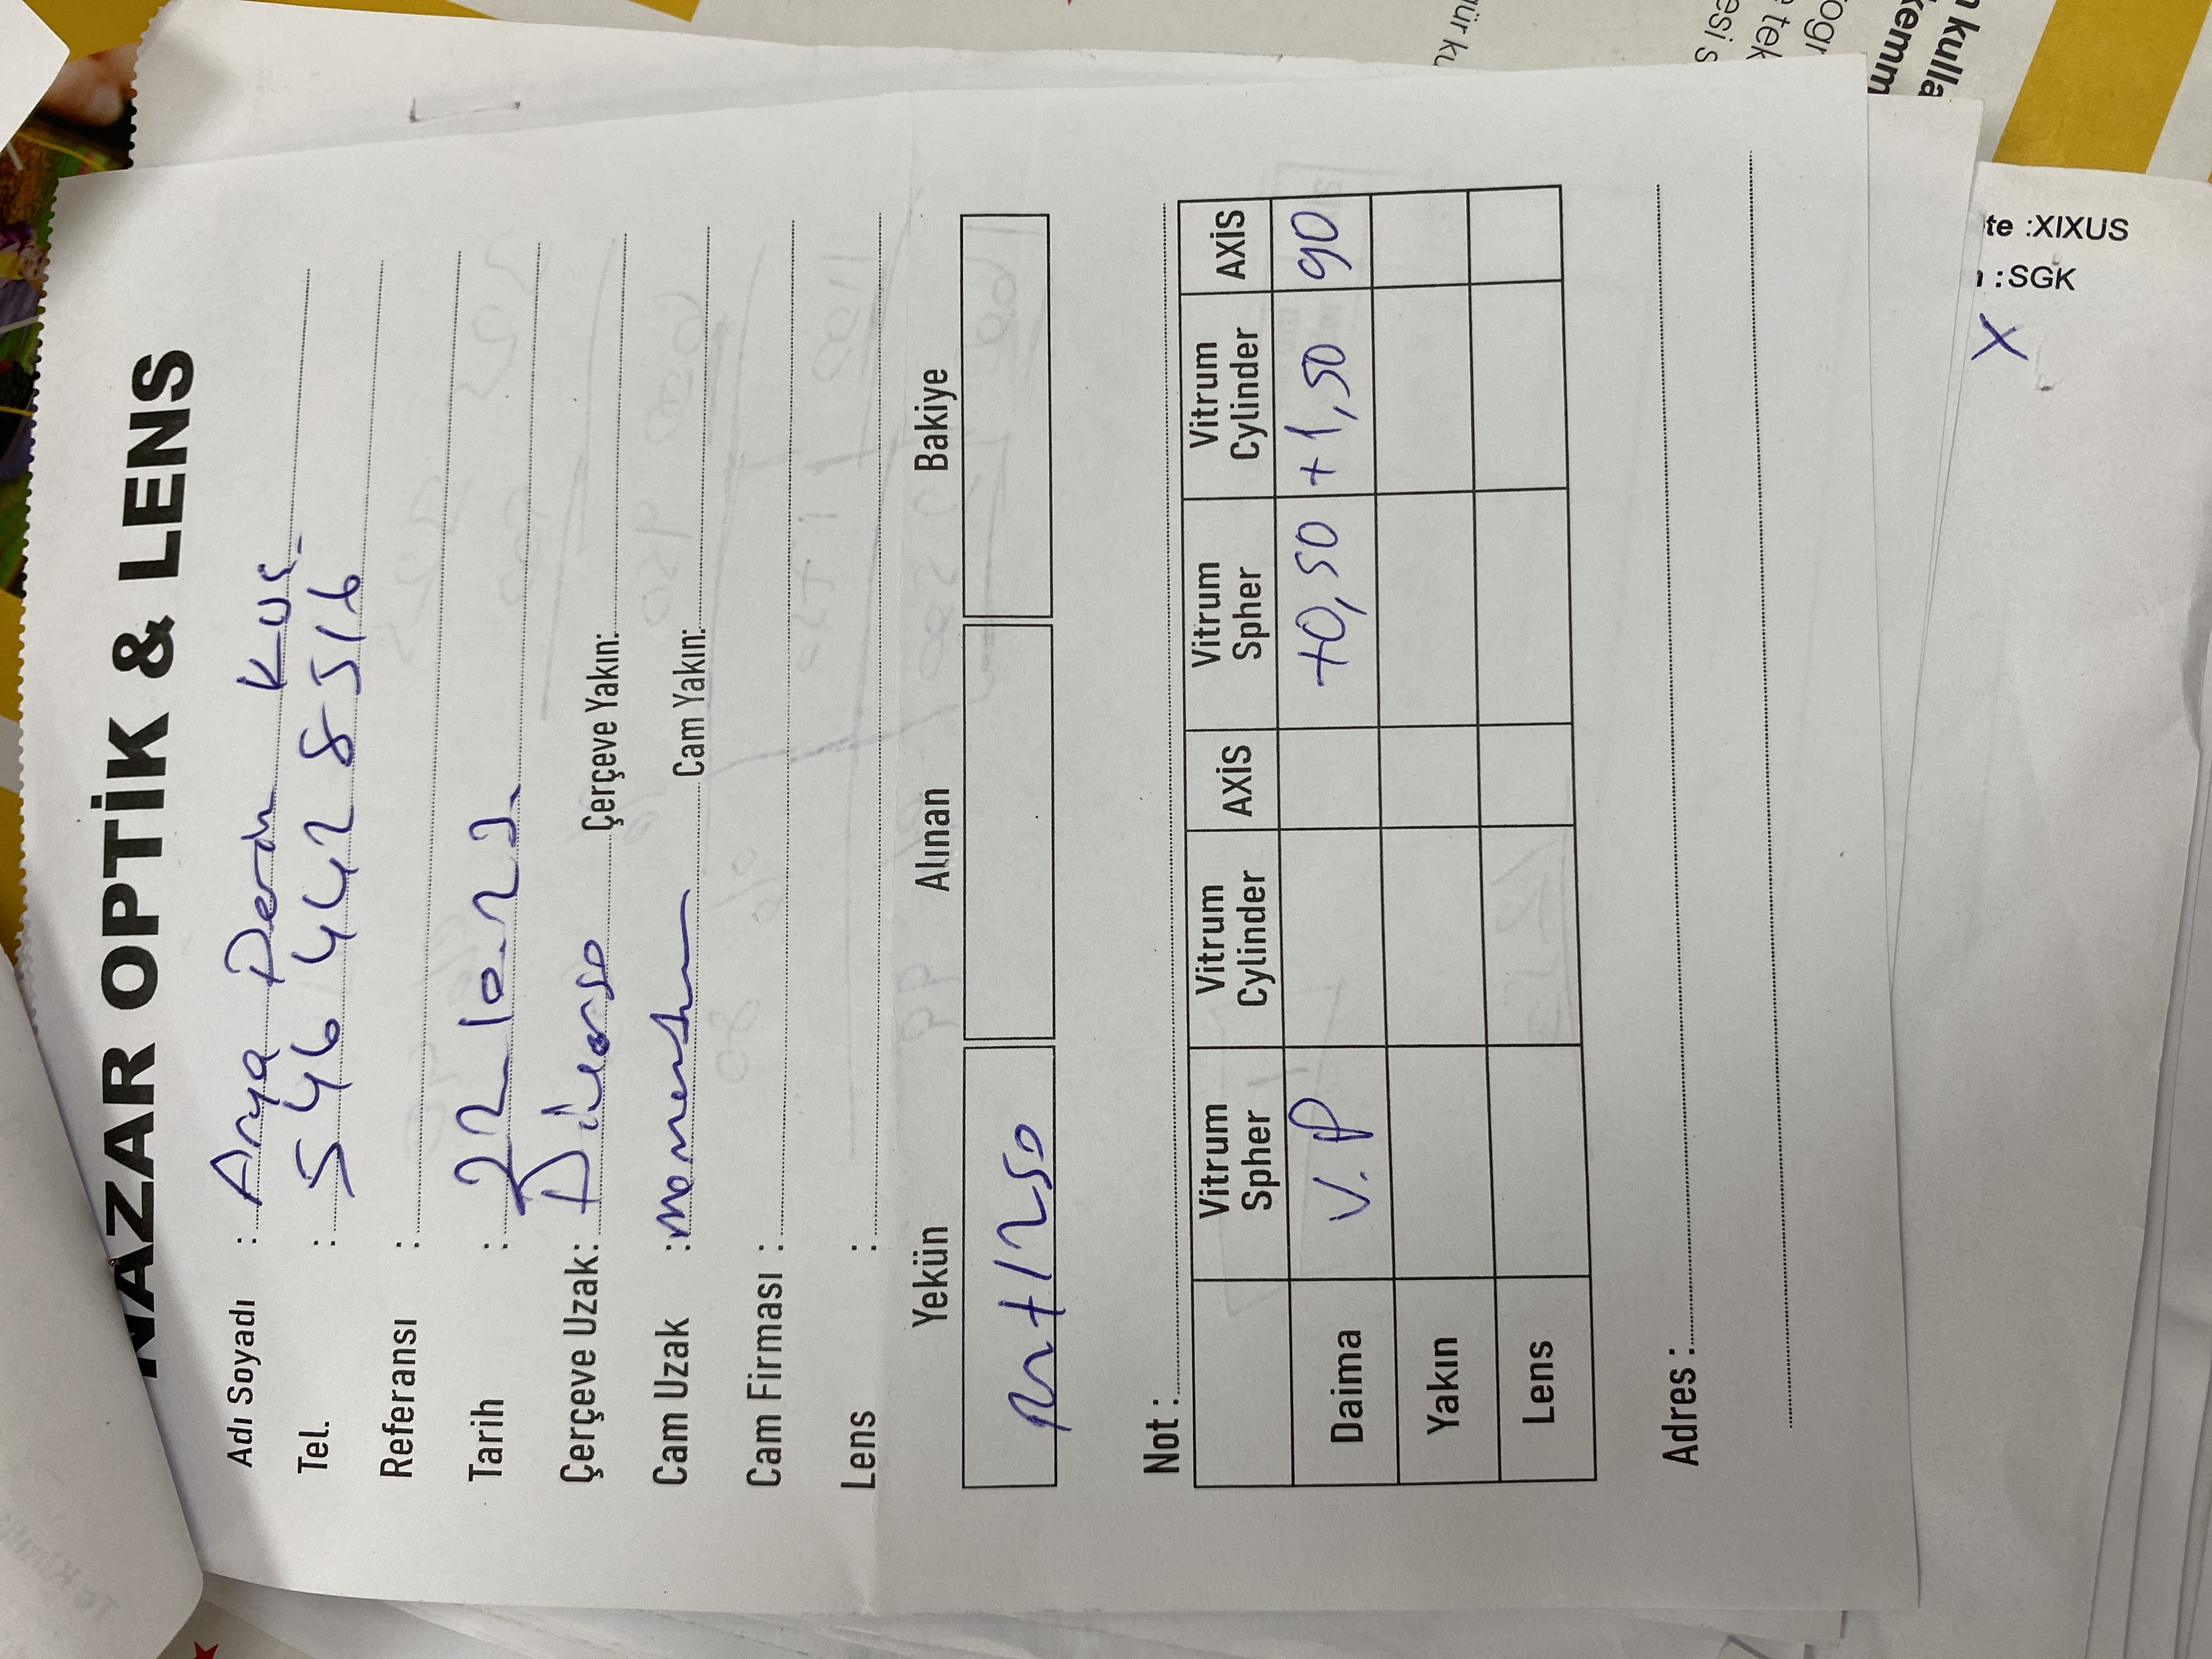 NAZAR OPTİK & LENS
Adı Soyadı : Arya Derin Kuş
Tel. : 546 442 8516
Referansı :
Tarih : 22.10.22.
Çerçeve Uzak: Diverso Çerçeve Yakın:
Cam Uzak : Momentum Cam Yakın:
Cam Firması :
Lens :
Yekün Alınan Bakiye
+1250
Not :
Vitrum Spher Vitrum Cylinder AXİS Vitrum Spher Vitrum Cylinder AXİS
Daima V.P +0,50 +1,50 90
Yakın
Lens
Adres :
X
:SGK
te :XIXUS